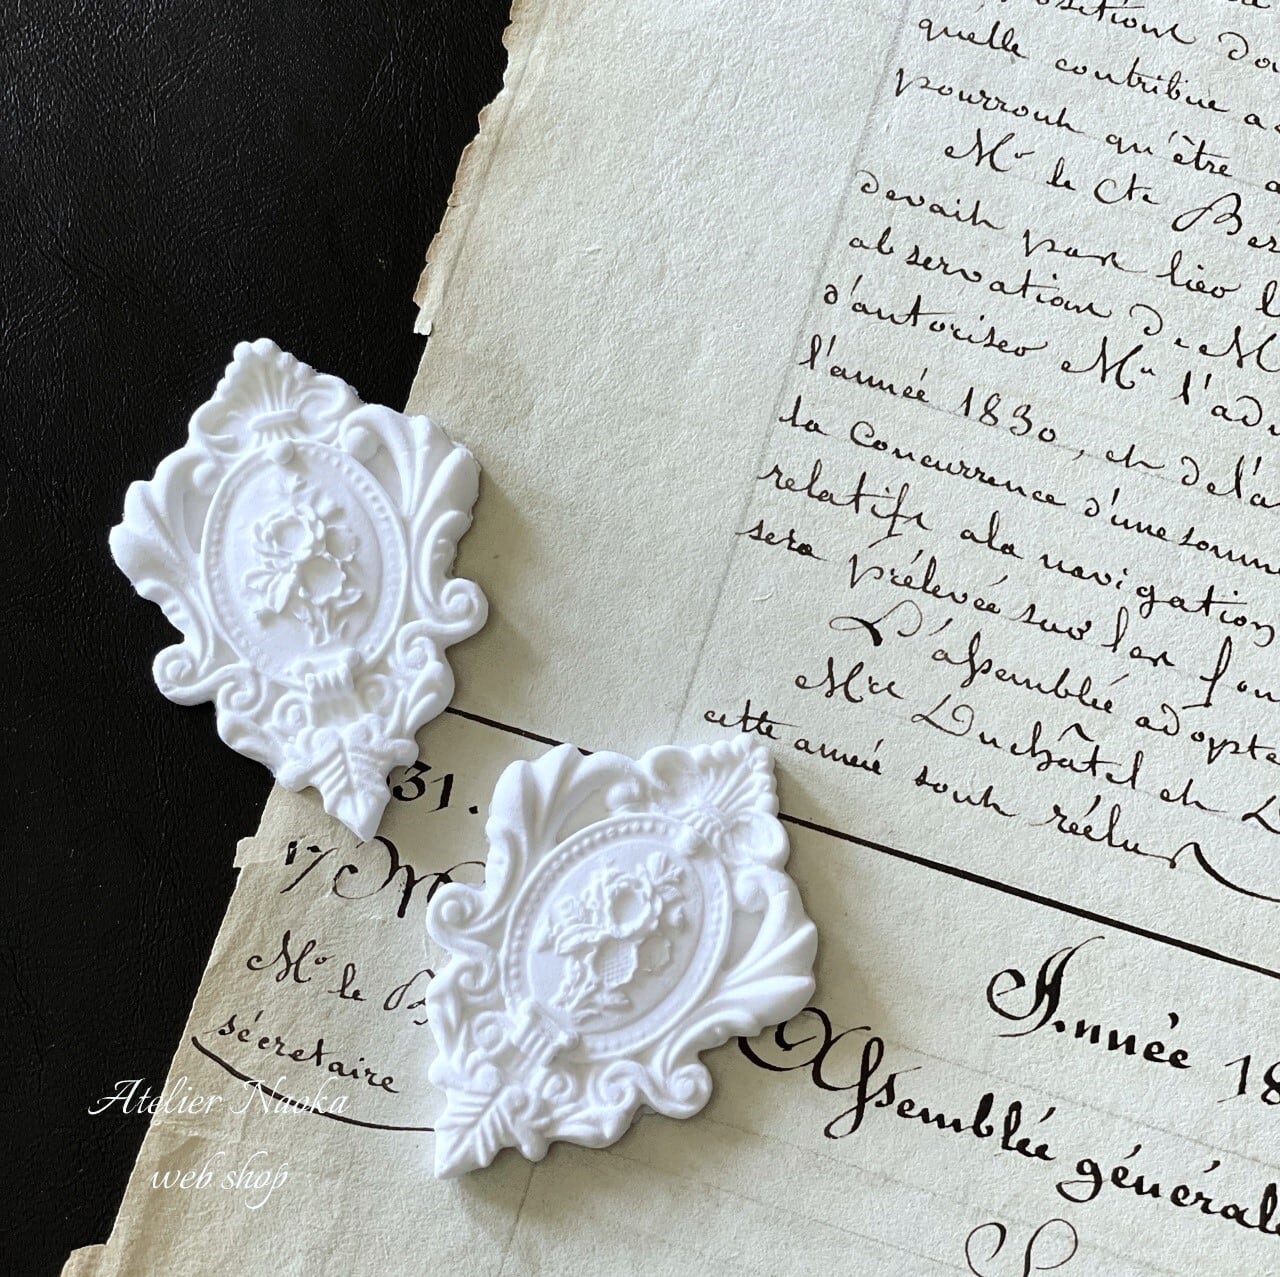 quelle contribue a
pourront qu'être a
Mr le Cte Bér
devait par lieu l
observation de M
d'autoriser Mr l'ad
l'année 1830, et de l'a
la Concurrence d'une somme
relatifs a la navigation
sera prélevée sur les fon
L'assemblée adopte
Mrs Duchâtel et D
cette année sont réélus
31.
17 M
Mr le B
sécretaire
Année 18
Assemblée générale
Atelier Naoka
web shop